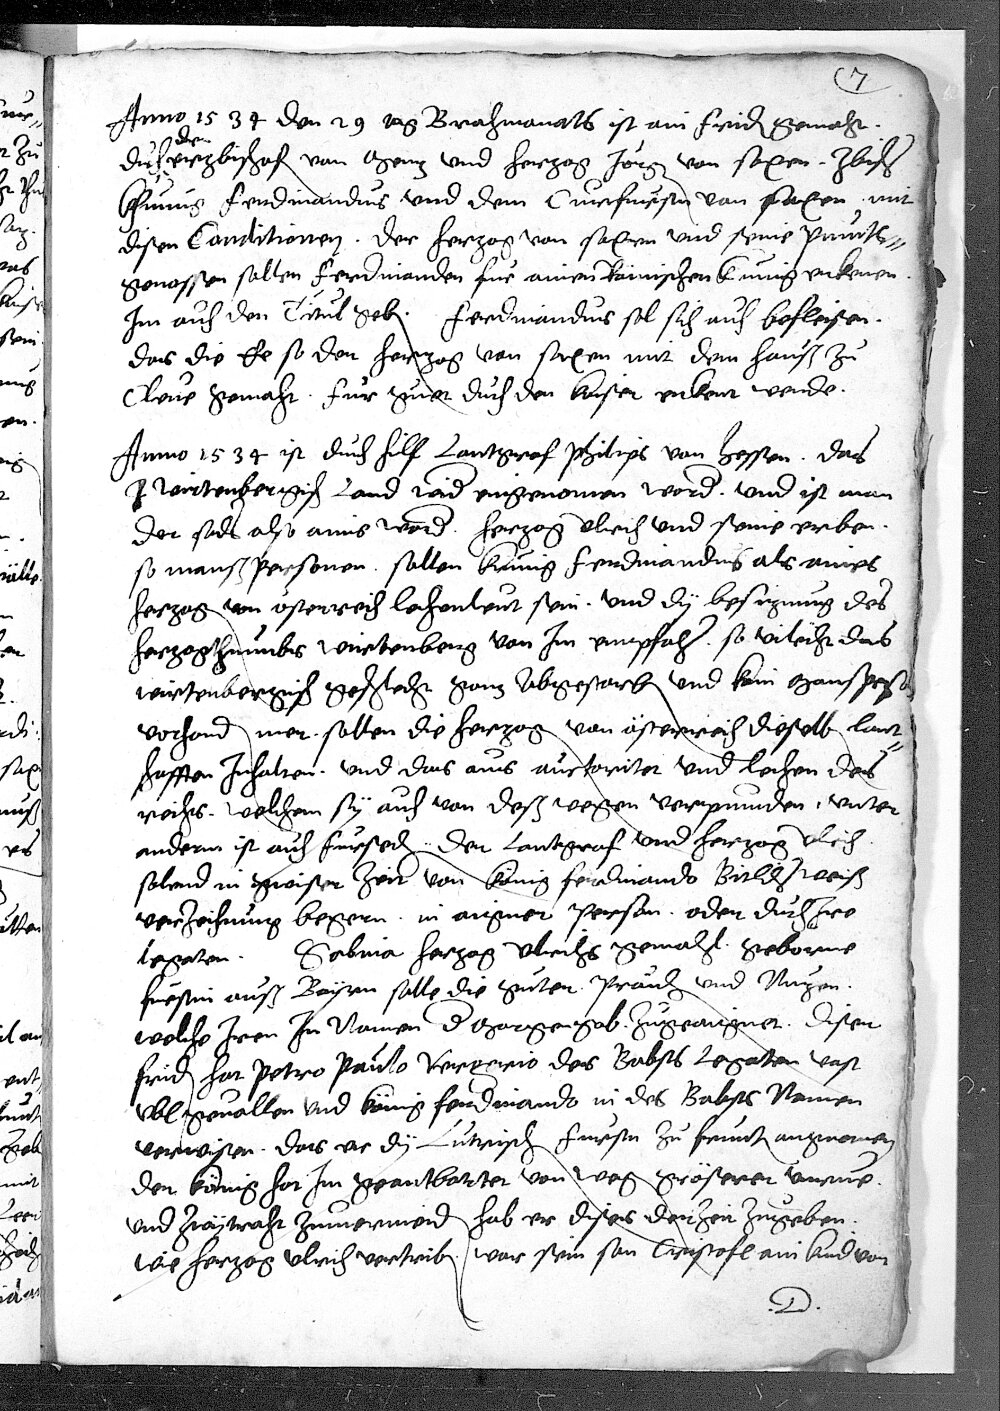 7
Anno 1534 den 29 tag Brahmonats ist ain frid gemacht.
durch den ertzbischof von Mentz und Hertzog Jörg von Saxen. zwisch
Künig Ferdinandus und dem Curfürsten von Saxen. mit
disen Conditionen. Der Hertzog von Saxen und seine Punts=
genossen sollen Ferdinanden für ainen Römischen Künig erkenen.
Im auch den Titul geb. Ferdinandus sol sich auch befleisen.
das die Ee so der Hertzog von Saxen mit dem Hauß zu
Cleve gemacht. für guet durch den Kaiser erkent werde.
Anno 1534 ist durch hilf Lantgraf Philips von Hessen. das
Wirtenbergisch Land wider eingenomen word. und ist man
der sach also ains word. Hertzog Ulrich und seine erben.
so manß personen. sollen Künig Ferdinandus als aines
Hertzog von österreich lehenleut sein. und dy besitzung des
Hertzogthumbs Wirtenberg von Im empfahen. so vileicht das
Wirtenbergisch geschlecht gantz abgestorb und kain Mansperson
vorhand mer. sollen die Hertzog von österreich dieselb lant=
schafften Inhalten. und das aus auctoritet und lechen des
reichs. welchem sy auch von deß wegen verpunden. unter
anderm ist auch fürsech. Der Lantgraf und Hertzog Ulrich
solend in gwiser zeit von König Ferdinando Bitlich weiß
verzeichnung begern. in aigner person. oder durch Ire
legaten. Sabina Hertzog Ulrichs gemahl. geborne
fürstin auß Bayrn solle die güter. Präuch und Nutzen.
welche Iren In Namen d Morgengab. zugeaignet. Disen
frid hat Petro Paulo Vergerio des Babsts Legaten vast
übl gevallen und König Ferdinando in des Babsts Namen
verwisen. das er dy Lutrisch fürsten zu freunt angenomen
der König hat Im geantbortet von weg gröserer unrue.
und zwaytracht zuvermeid hab er dises der zeit zugeben.
wie Hertzog Ulrich vertrib. war sein son Cristofl ain kind von
D.